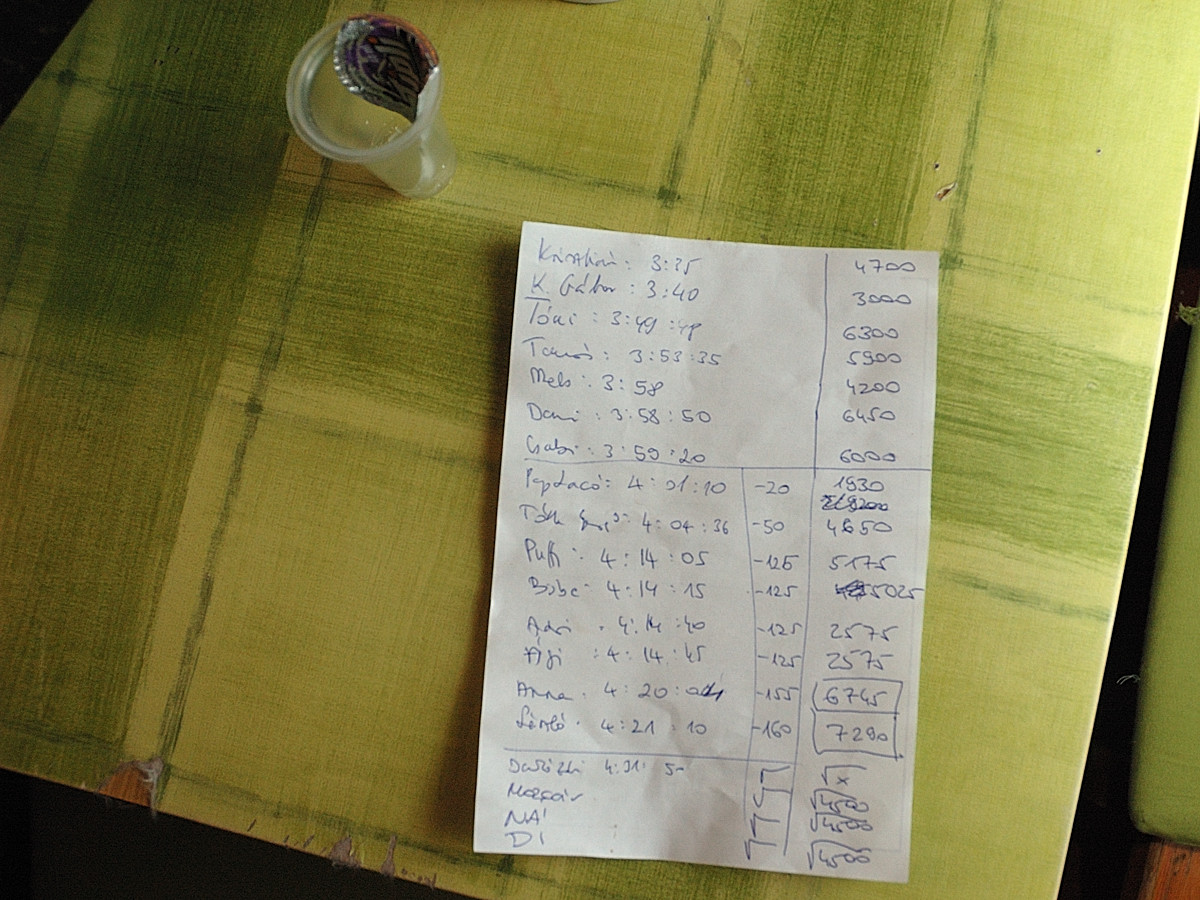 Krisztián : 3:35 4700
K. Gábor : 3:40 3000
Tóni : 3:49:48 6300
Tamás : 3:53:35 5900
Mels : 3:58 4200
Dani : 3:58:50 6450
Gabi : 3:59:20 6000
4:01:10 -20 1930
Tóth 4:04:36 -50 4650
Puffi : 4:14:05 -125 5175
4:14:15 -125 5025
Adri : 4:14:40 -125 2575
Ági : 4:14:45 -125 2575
Anna : 4:20:04 -155 6745
László : 4:21:10 -160 7290
4:31: 5- x
4500
NÁ 4500
DI 4500